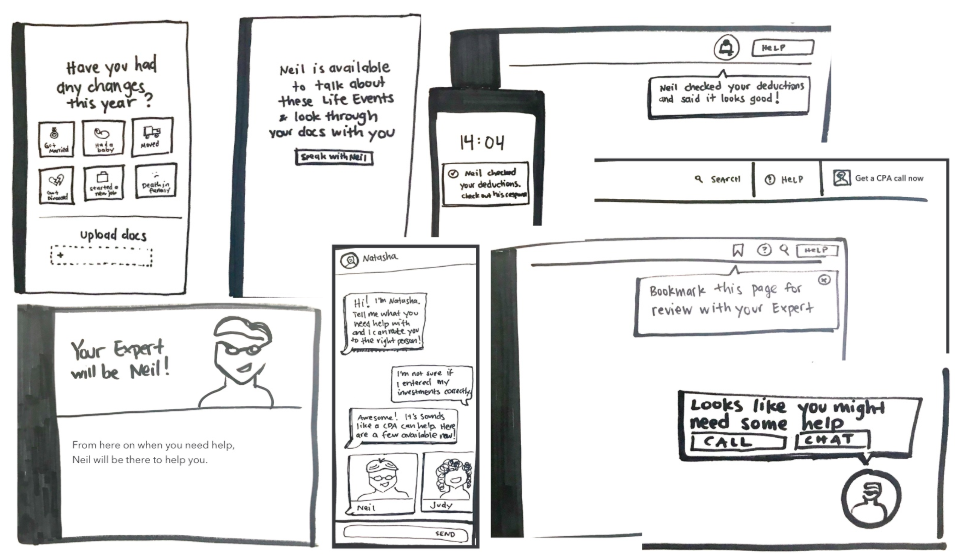 Have you had
any changes
this year?
Got
Married
Had a
baby
Moved
Got
Divorced
Started a
new job
Death in
Family
upload docs
+
Neil is available
to talk about
these Life Events
& look through
your docs with you
Speak with Neil
14:04
Neil checked
your deductions.
check out his response
HELP
Neil checked your deductions
and said it looks good!
SEARCH
? HELP
Get a CPA call now
Your Expert
will be Neil!
From here on when you need help,
Neil will be there to help you.
Natasha
Hi! I'm Natasha.
Tell me what you
need help with
and I can route you
to the right person!
I'm not sure if
I entered my
investments correctly.
Awesome! It's sounds
like a CPA can help. Here
are a few available now!
Neil
Judy
SEND
? HELP
Bookmark this page for
review with your Expert
x
Looks like you might
need some help
CALL
CHAT